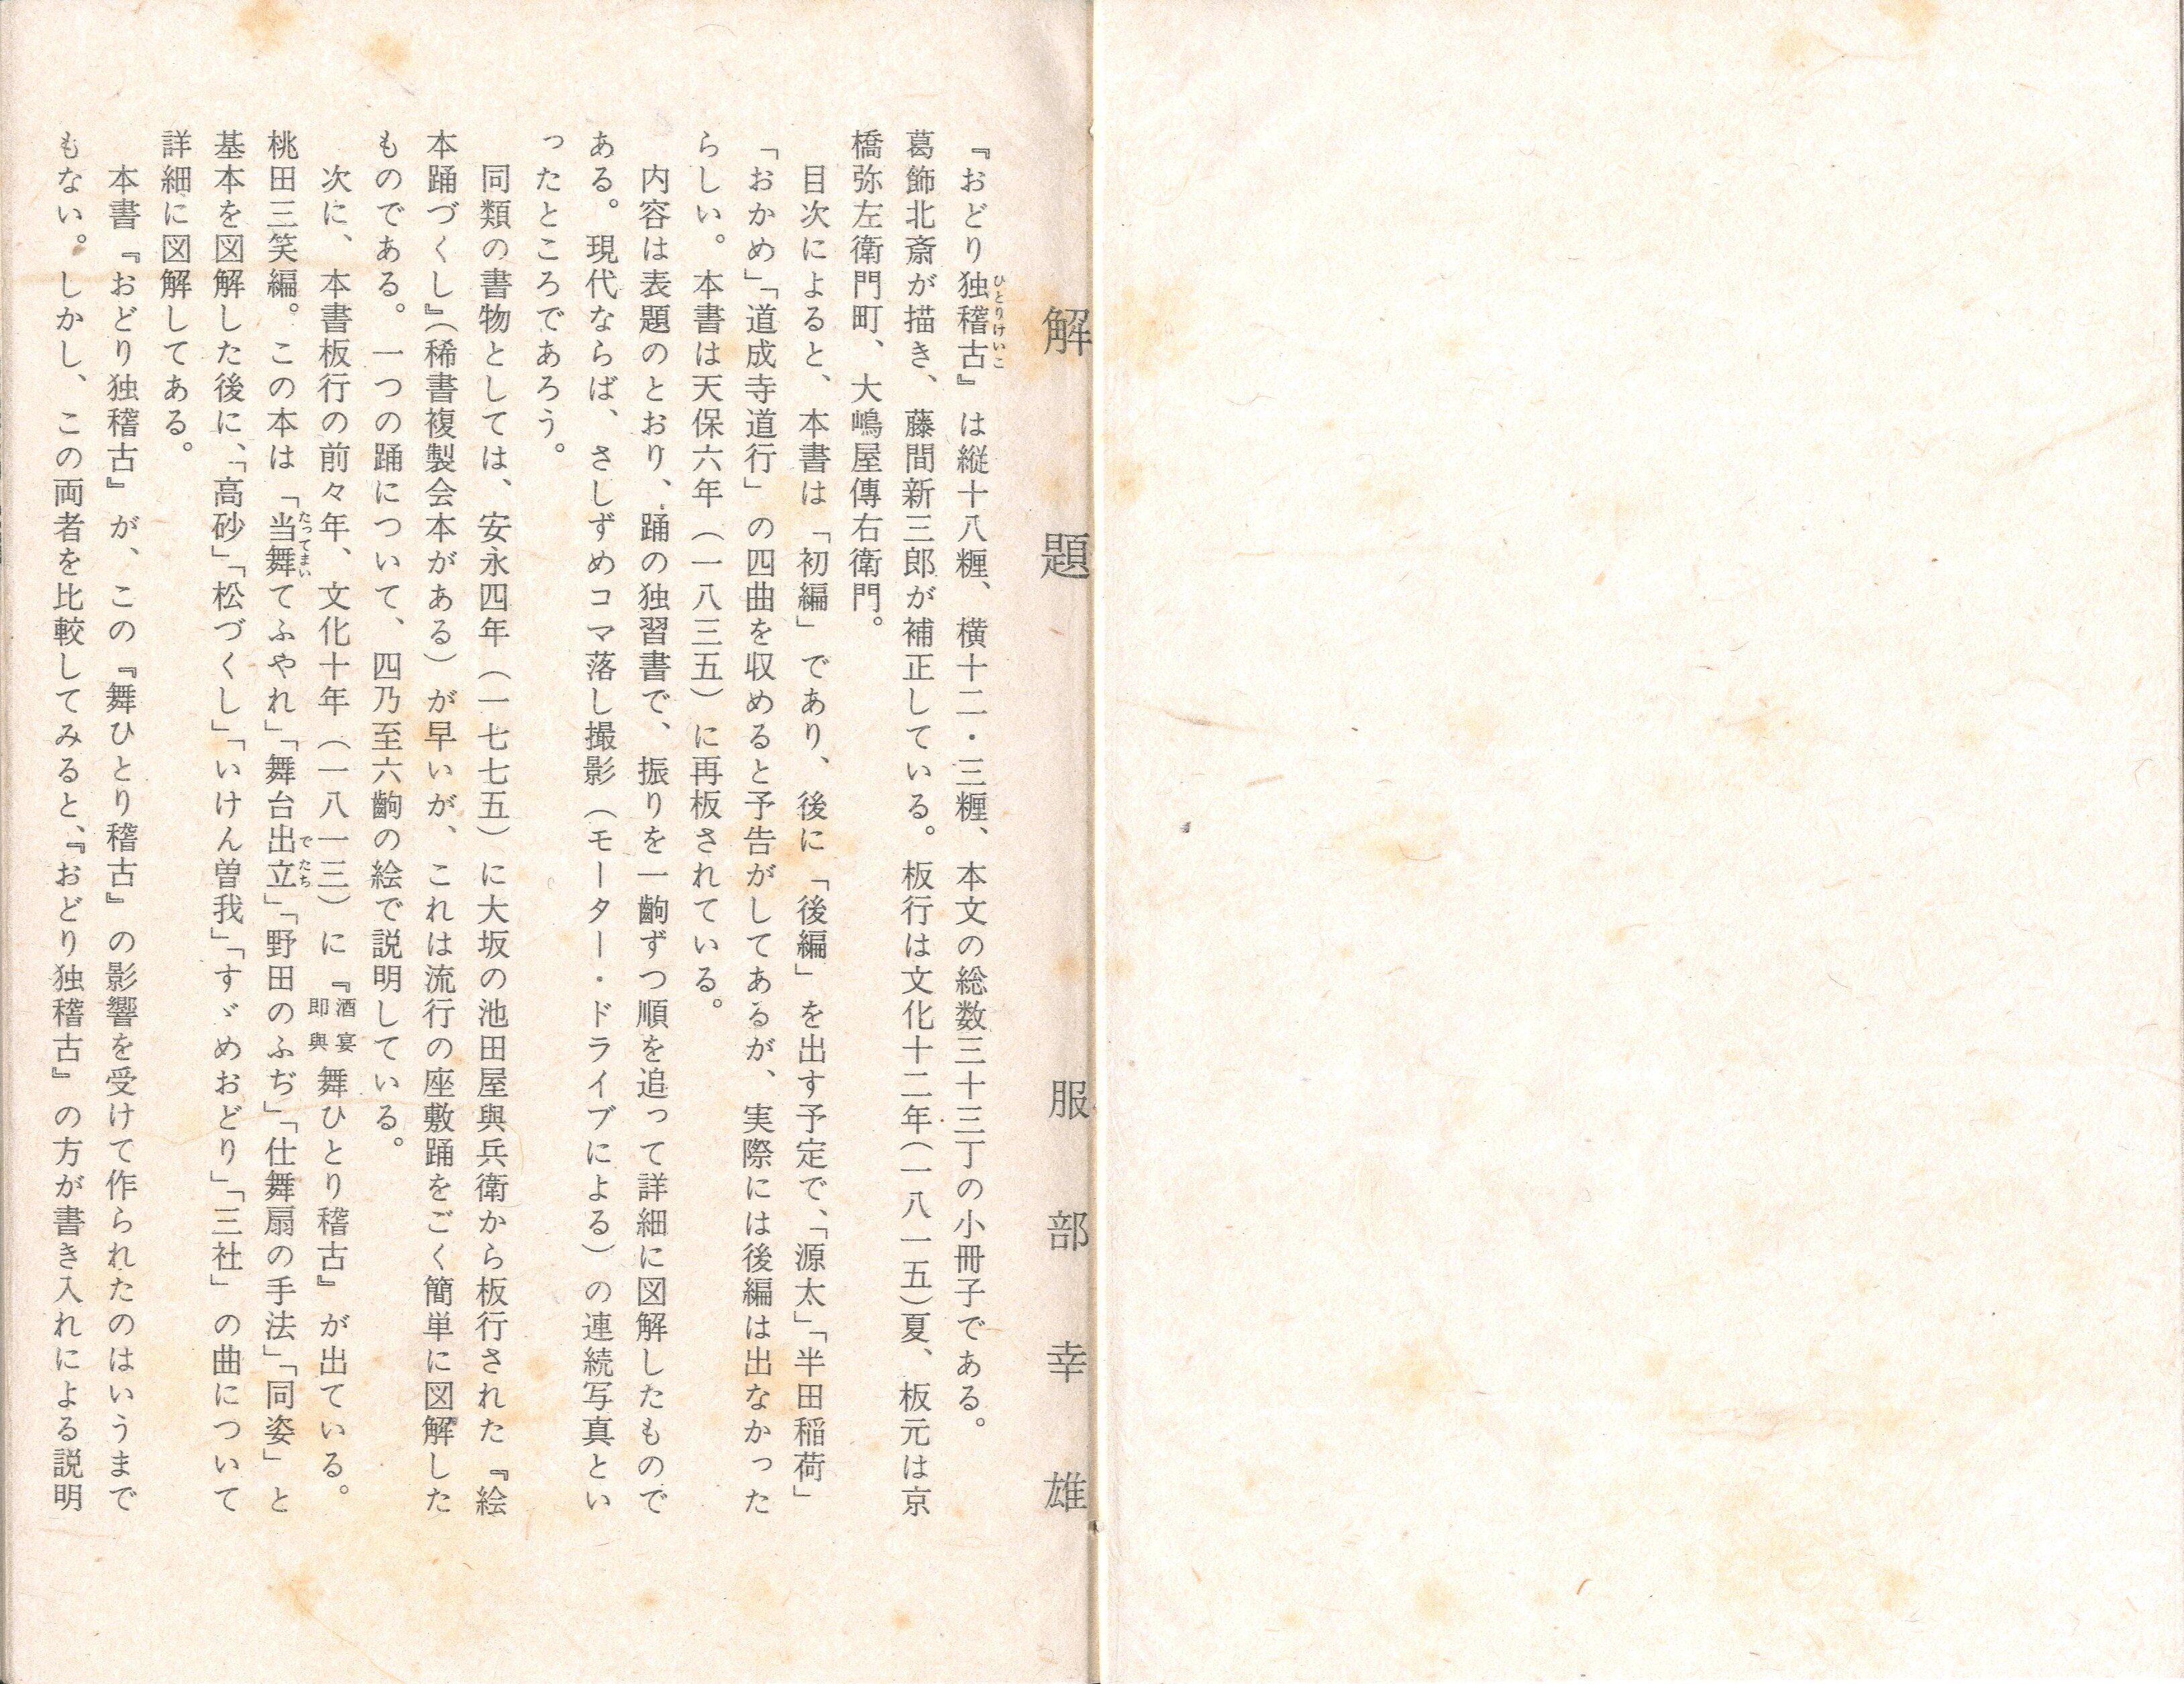 解題　服部幸雄
『おどり独稽古』は縦十八糎、横十二・三糎、本文の総数三十三丁の小冊子である。
ひとりけいこ
葛飾北斎が描き、藤間新三郎が補正している。板行は文化十二年(一八一五)夏、板元は京
橋弥左衛門町、大嶋屋傳右衛門。
目次によると、本書は「初編」であり、後に「後編」を出す予定で、「源太」「半田稲荷」
「おかめ」「道成寺道行」の四曲を収めると予告がしてあるが、実際には後編は出なかった
らしい。本書は天保六年（一八三五）に再板されている。
内容は表題のとおり、踊の独習書で、振りを一齣ずつ順を追って詳細に図解したもので
ある。現代ならば、さしずめコマ落し撮影（モーター・ドライブによる）の連続写真とい
ったところであろう。
同類の書物としては、安永四年（一七七五）に大坂の池田屋與兵衛から板行された『絵
本踊づくし』（稀書複製会本がある）が早いが、これは流行の座敷踊をごく簡単に図解した
ものである。一つの踊について、四乃至六齣の絵で説明している。
次に、本書板行の前々年、文化十年（一八一三）に『酒宴即興舞ひとり稽古』が出ている。
桃田三笑編。この本は「当舞てふやれ」「舞台出立」「野田のふぢ」「仕舞扇の手法」「同姿」と
たってまい
でたち
基本を図解した後に、「高砂」「松づくし」「いけん曽我」「すゞめおどり」「三社」の曲について
詳細に図解してある。
本書『おどり独稽古』が、この『舞ひとり稽古』の影響を受けて作られたのはいうまで
もない。しかし、この両者を比較してみると、『おどり独稽古』の方が書き入れによる説明